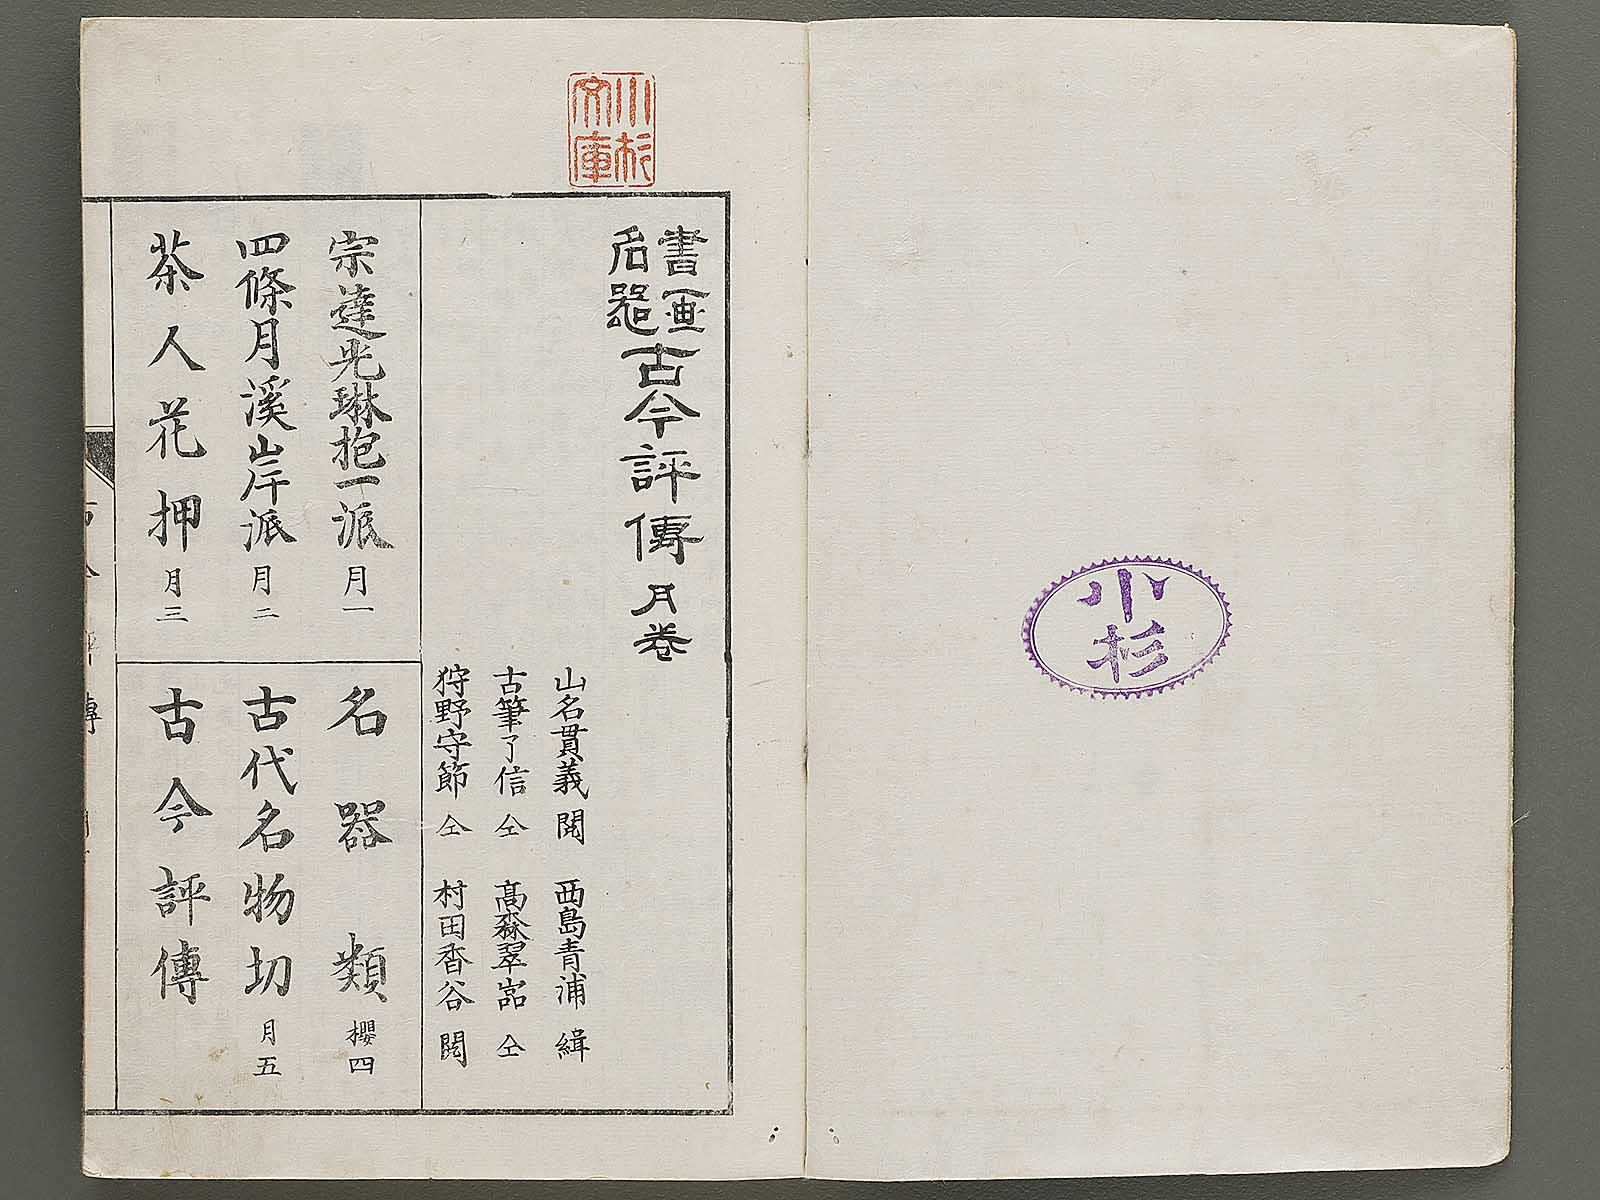 小杉
小杉
文庫
書画
名器
古今評傳月卷
山名貫義閲　西島青浦緝
古筆了信仝　髙森翠嵒仝
狩野守節仝　村田香谷閲
宗達光琳抱一派　月一
四條月溪岸派　月二
茶人花押　月三
名器類　櫻四
古代名物切　月五
古今評傳